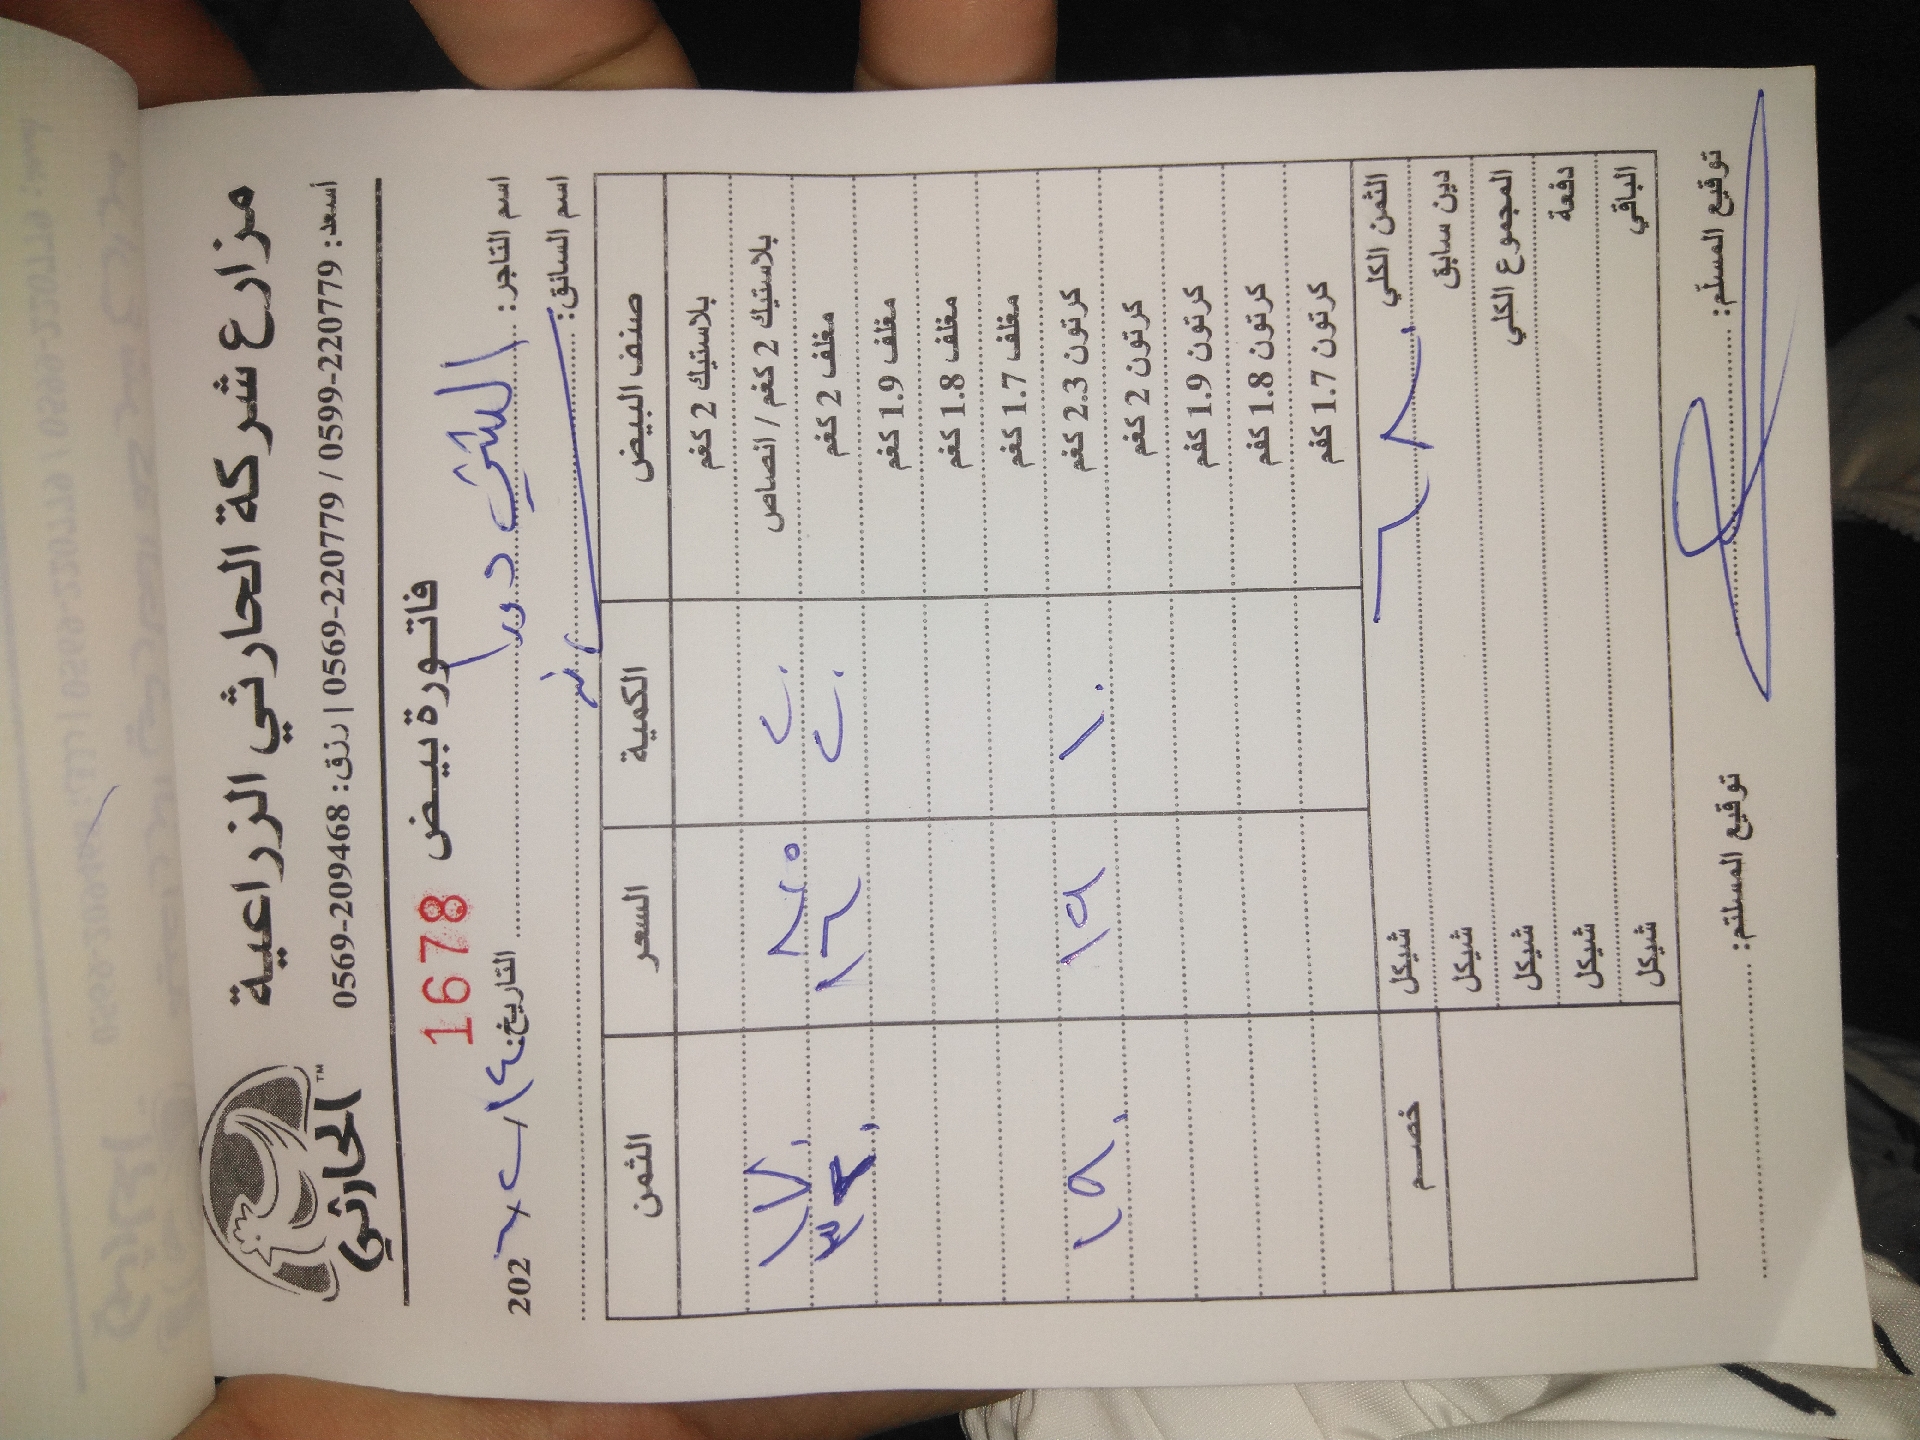 مزارع شركة الحارثي الزراعية
الحارثي™
أسعد: 0599-220779 / 0569-220779 | رزق: 0569-209468
فاتورة بيض 1678
اسم التاجر: دورا التاريخ: ١٤ / 202
اسم السائق:
صنف البيض الكمية السعر الثمن
بلاستيك 2 كغم
بلاستيك 2 كغم / انصاص ٢٠ ١٧٠
مغلف 2 كغم ٢٠ ١٦ ٣٢٠
مغلف 1.9 كغم
مغلف 1.8 كغم
مغلف 1.7 كغم
كرتون 2.3 كغم ١٠ ١٩ ١٩٠
كرتون 2 كغم
كرتون 1.9 كغم
كرتون 1.8 كغم
كرتون 1.7 كغم
الثمن الكلي ٦٨٠ شيكل خصم
دين سابق شيكل
المجموع الكلي شيكل
دفعة شيكل
الباقي شيكل
توقيع المسلّم: توقيع المستلم: